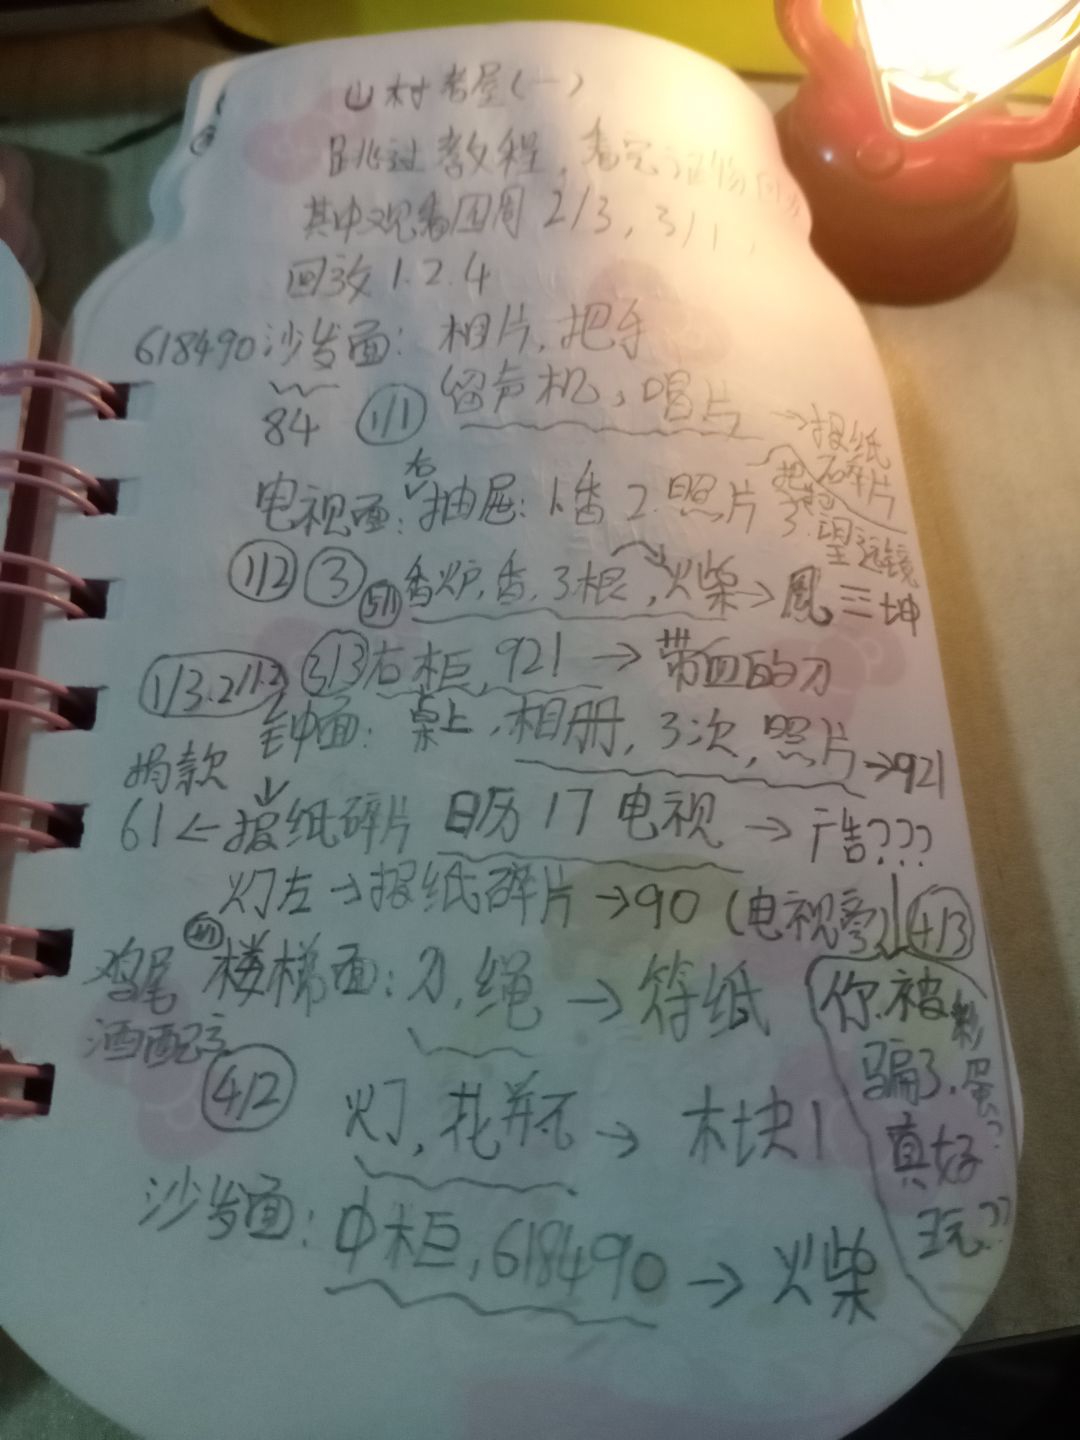 山村老屋(一)
跳过教程,看完证物
其中观看四周 2/3, 3/1,
回放 1.2.4
618490 沙发面: 相片,把手
84 1/1 留声机,唱片 →报纸碎片
电视面: 右 抽屉: 1.香 2.照片 3.望远镜
1/2 3 5/1 香炉,香,3根,火柴→凤 三坤
1/3.2/1.2 3/3 右柜,921 → 带血的刀
钟面: 桌上,相册,3次,照片→921
捐款
61←报纸碎片 日历 17 电视 → 广告???
灯左→报纸碎片→90 (电视旁) 4/3
鸡尾酒配方
楼梯面: 刀,绳 → 符纸
4/2 灯,花瓶 → 木块1
你被骗了,
真好玩??
沙发面: 中柜,618490 → 火柴